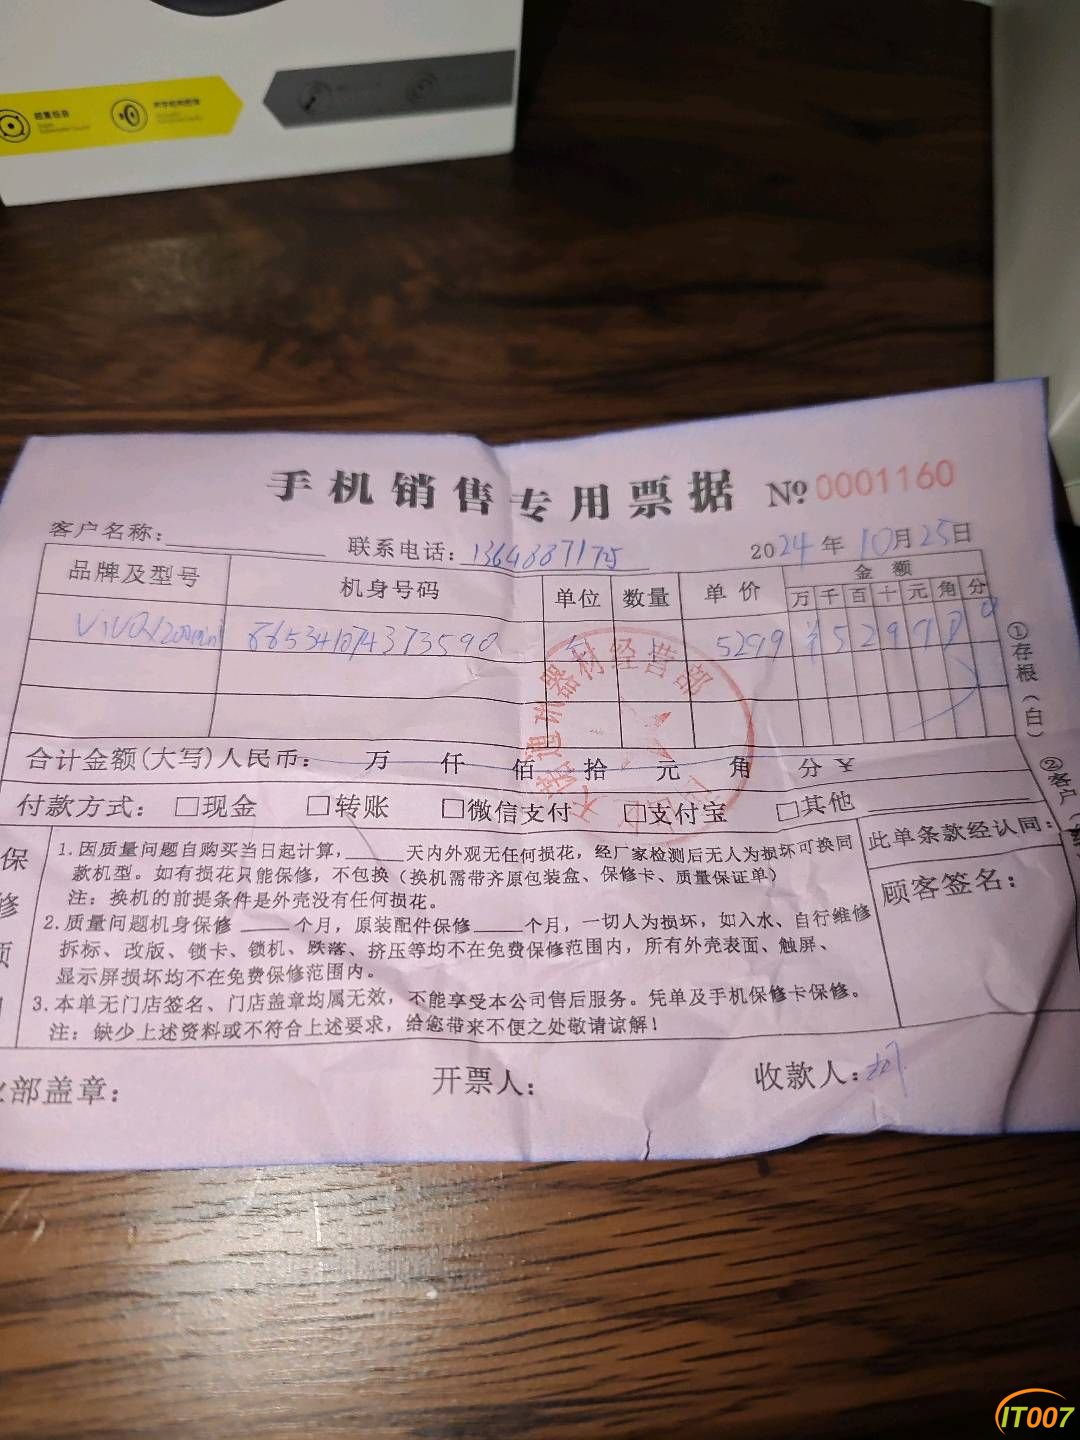 超重低音
手机销售专用票据 № 0001160
客户名称：
联系电话：
2024年10月25日
品牌及型号 机身号码 单位 数量 单价 金额
万 千 百 十 元 角 分
5299 ¥ 5 2 9 9 0 0
①存根（白）
②客户
合计金额(大写)人民币： 万 仟 佰 拾 元 角 分 ¥
付款方式： □现金 □转账 □微信支付 □支付宝 □其他
保
修
1.因质量问题自购买当日起计算，____天内外观无任何损花，经厂家检测后无人为损坏可换同
款机型。如有损花只能保修，不包换（换机需带齐原包装盒、保修卡、质量保证单）
注：换机的前提条件是外壳没有任何损花。
2.质量问题机身保修____个月，原装配件保修____个月，一切人为损坏，如入水、自行维修
拆标、改版、锁卡、锁机、跌落、挤压等均不在免费保修范围内，所有外壳表面、触屏、
显示屏损坏均不在免费保修范围内。
3.本单无门店签名、门店盖章均属无效，不能享受本公司售后服务。凭单及手机保修卡保修。
注：缺少上述资料或不符合上述要求，给您带来不便之处敬请谅解！
此单条款经认同：
顾客签名：
部盖章：
开票人：
收款人：
器材经营部
IT007